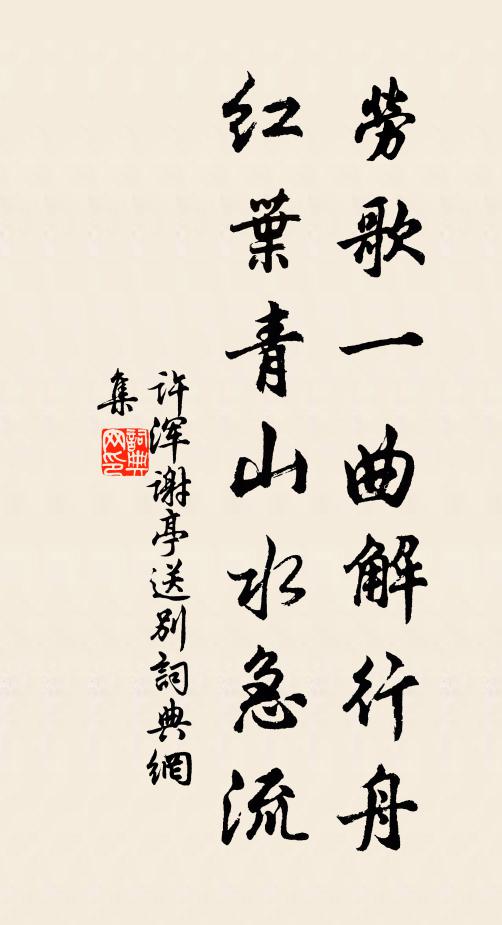 勞歌一曲解行舟
紅葉青山水急流
許渾謝亭送別詞典網
集
詞典
网印